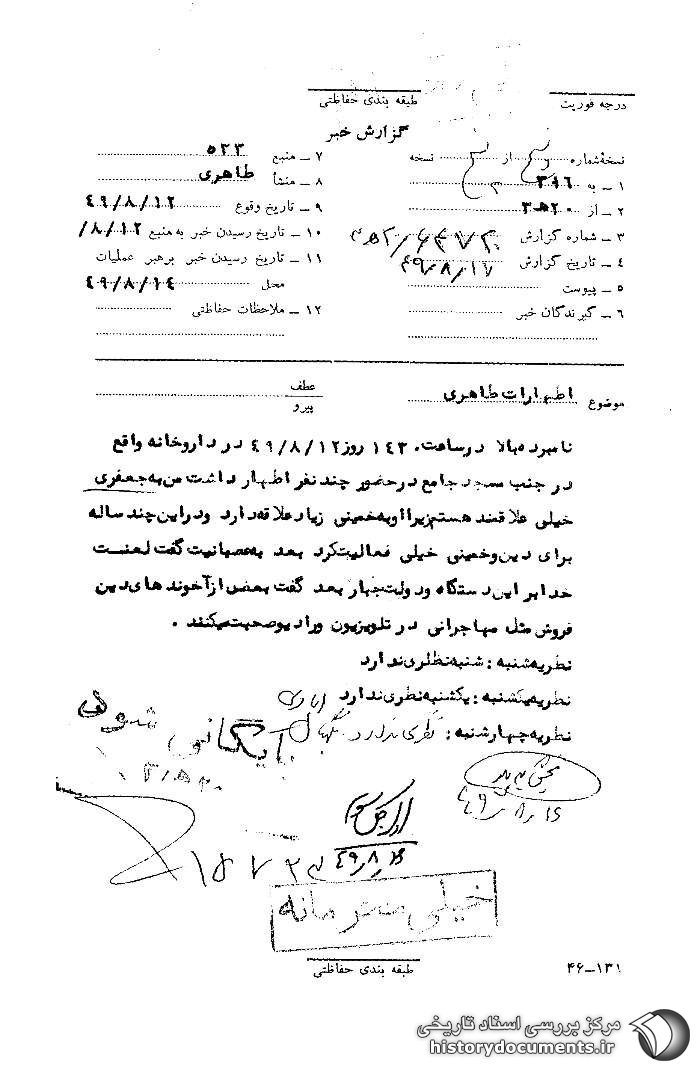 درجه فوریت
طبقه بندی حفاظتی
گزارش خبر
نسخهٔ شماره از نسخه
۱ ـ به ۳۱۶
۲ ـ از
۳ ـ شماره گزارش
۴ ـ تاریخ گزارش ۴۹/۸/۱۷
۵ ـ پیوست
۶ ـ گیرندگان خبر
۷ ـ منبع ۵۲۳
۸ ـ منشأ طاهری
۹ ـ تاریخ وقوع ۴۹/۸/۱۲
۱۰ ـ تاریخ رسیدن خبر به منبع ۸/۱۲/
۱۱ ـ تاریخ رسیدن خبر برهبر عملیات
محل ۴۹/۸/۱۴
۱۲ ـ ملاحظات حفاظتی
موضوع اظهارات طاهری
عطف
پیرو
نامبرده بالا در ساعت ۱۴۳۰ روز ۴۹/۸/۱۲ در داروخانه واقع
در جنب مسجد جامع در حضور چند نفر اظهار داشت من به جعفری
خیلی علاقمند هستم زیرا او به خمینی زیاد علاقه دارد و در این چند ساله
برای دین و خمینی خیلی فعالیت کرد بعد به عصبانیت گفت لعنت
خدا بر این دستگاه و دولت جبار بعد گفت بعضی از آخوند های دین
فروش مثل مهاجرانی در تلویزیون و رادیو صحبت میکنند .
نظریه شنبه : شنبه نظری ندارد
نظریه یکشنبه : یکشنبه نظری ندارد
نظریه چهارشنبه : نظری ندارد
بایگانی شود
خیلی محرمانه
طبقه بندی حفاظتی
۴۶-۱۳۱
مرکز بررسی اسناد تاریخی
historydocuments.ir